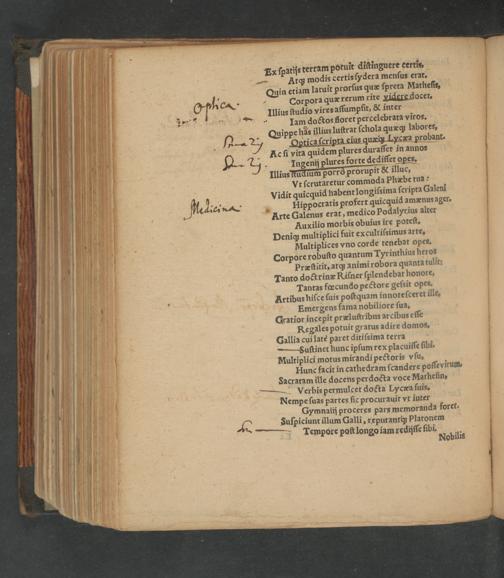 Ex spatijs terram potuit distinguere certis,
Atq; modis certis sydera mensus erat.
Quin etiam latuit prorsus quæ spreta Mathesis,
Corpora quæ rerum rite videre docet.
Optica.
Illius studio vires assumpsit, & inter
Iam doctos floret percelebrata viros.
Quippe hãs illius lustrat schola quæq; labores,
Optica scripta eius quæq; Lycæa probant.
Ac si vita quidem plures durasset in annos
Ingenij plures forte dedisset opes.
Illius studium porrò prorupit & illuc,
Vt scrutaretur commoda Phœbe tua:
Vidit quicquid habent longissima scripta Galeni
Hippocratis profert quicquid amænus ager.
Medicina.
Arte Galenus erat, medico Podalyrius alter
Auxilio morbis obuius ire potest.
Deniq; multiplici fuit excultissimus arte,
Multiplices vno corde tenebat opes.
Corpore robusto quantum Tyrinthius heros
Præstitit, atq; animi robora quanta tulit:
Tanto doctrinæ Risner splendebat honore,
Tantas fœcundo pectore gessit opes.
Artibus hisce suis postquam innotesceret ille,
Emergens fama nobiliore sua,
Gratior incepit prælustribus arcibus esse
Regales potuit gratus adire domos.
Gallia cui latè paret ditissima terra
Sustinet hunc ipsum rex placuisse sibi.
Multiplici motus mirandi pectoris vsu,
Hunc facit in cathedram scandere posse virum.
Sacraram ille docens perdocta voce Mathesin,
Verbis permulcet docta Lycæa suis.
Nempe suas partes sic procurauit vt inter
Gymnasij proceres pars memoranda foret.
Suspiciunt illum Galli, reputantq; Platonem
Tempore post longo iam redijsse sibi.
Nobilis